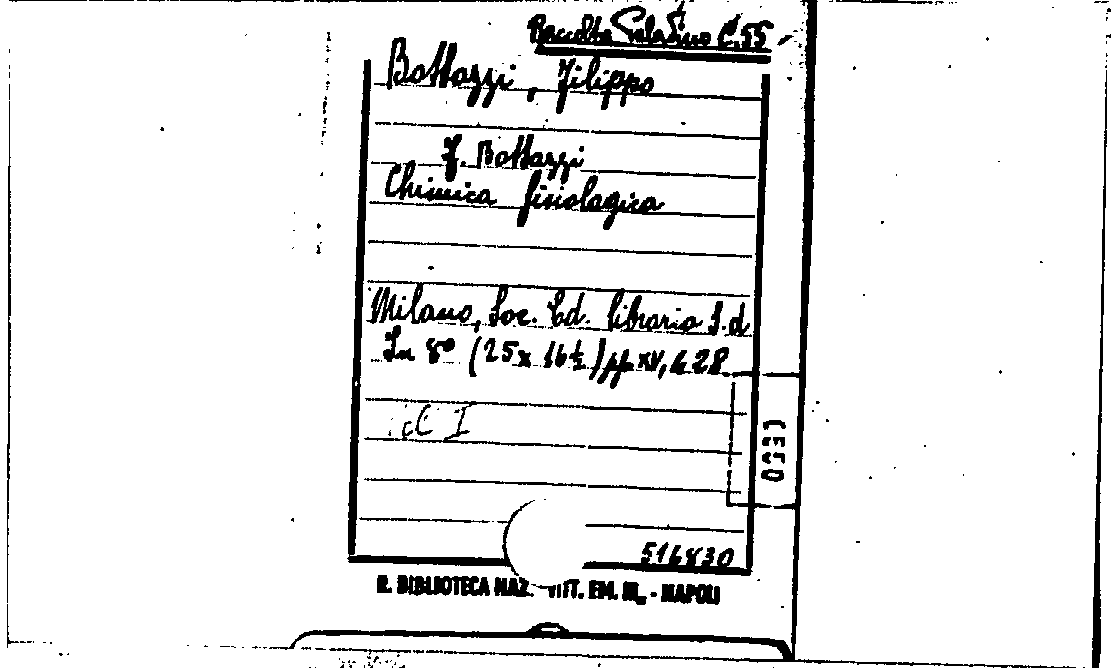 Raccolta Galatino C. 55
Bottazzi, Filippo
F. Bottazzi
Chimica fisiologica
Milano, Soc. Ed. libraria S.d
In 8° (25x 16½) pp. XV, 428
cC I
516830
R. BIBLIOTECA NAZ. VITT. EM. III. - NAPOLI